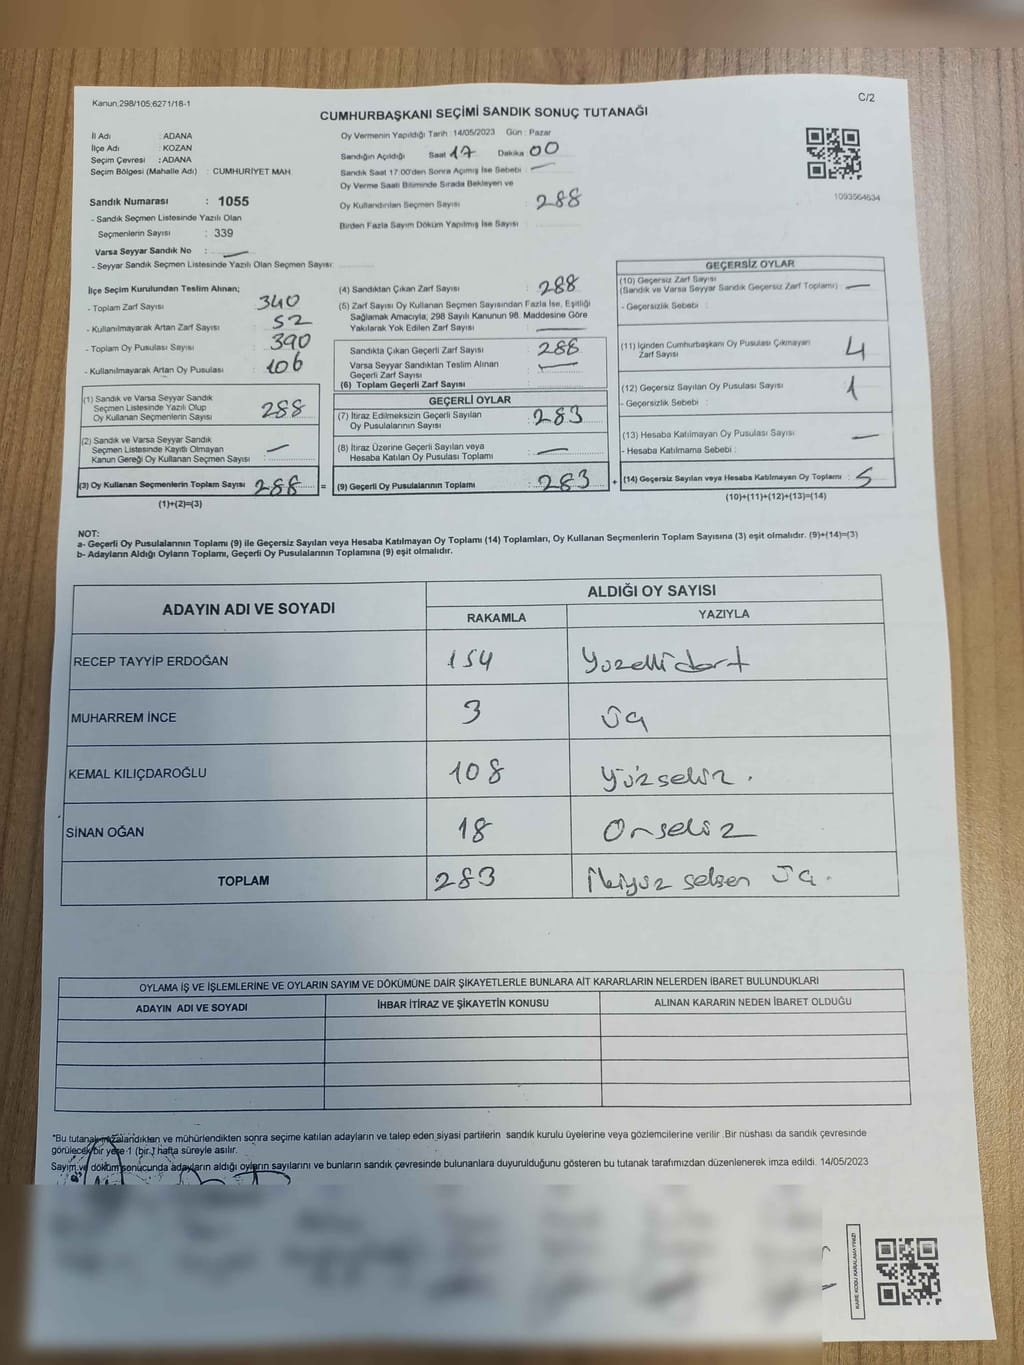 Kanun,298/105;6271/18-1
C/2
CUMHURBAŞKANI SEÇİMİ SANDIK SONUÇ TUTANAĞI
İl Adı : ADANA
İlçe Adı : KOZAN
Seçim Çevresi : ADANA
Seçim Bölgesi (Mahalle Adı) : CUMHURİYET MAH.
Sandık Numarası : 1055
- Sandık Seçmen Listesinde Yazılı Olan
Seçmenlerin Sayısı : 339
Varsa Seyyar Sandık No : —
- Seyyar Sandık Seçmen Listesinde Yazılı Olan Seçmen Sayısı:
Oy Vermenin Yapıldığı Tarih : 14/05/2023 Gün : Pazar
Sandığın Açıldığı Saat 17 Dakika 00
Sandık Saat 17:00'den Sonra Açımış İse Sebebi : —
Oy Verme Saati Bitiminde Sırada Bekleyen ve
Oy Kullandırılan Seçmen Sayısı : 288
Birden Fazla Sayım Döküm Yapılmış İse Sayısı :
1093564634
İlçe Seçim Kurulundan Teslim Alınan;
- Toplam Zarf Sayısı : 340
- Kullanılmayarak Artan Zarf Sayısı : 52
- Toplam Oy Pusulası Sayısı : 390
- Kullanılmayarak Artan Oy Pusulası : 106
(1) Sandık ve Varsa Seyyar Sandık
Seçmen Listesinde Yazılı Olup
Oy Kullanan Seçmenlerin Sayısı : 288
(2) Sandık ve Varsa Seyyar Sandık
Seçmen Listesinde Kayıtlı Olmayan
Kanun Gereği Oy Kullanan Seçmen Sayısı : —
(3) Oy Kullanan Seçmenlerin Toplam Sayısı : 288 =
(1)+(2)=(3)
(4) Sandıktan Çıkan Zarf Sayısı : 288
(5) Zarf Sayısı Oy Kullanan Seçmen Sayısından Fazla İse, Eşitliği
Sağlamak Amacıyla, 298 Sayılı Kanunun 98. Maddesine Göre
Yakılarak Yok Edilen Zarf Sayısı : —
Sandıkta Çıkan Geçerli Zarf Sayısı : 288
Varsa Seyyar Sandıktan Teslim Alınan
Geçerli Zarf Sayısı : —
(6) Toplam Geçerli Zarf Sayısı :
GEÇERLİ OYLAR
(7) İtiraz Edilmeksizin Geçerli Sayılan
Oy Pusulasının Sayısı : 283
(8) İtiraz Üzerine Geçerli Sayılan veya
Hesaba Katılan Oy Pusulası Toplamı : —
(9) Geçerli Oy Pusulalarının Toplamı : 283 +
GEÇERSİZ OYLAR
(10) Geçersiz Zarf Sayısı
(Sandık ve Varsa Seyyar Sandık Geçersiz Zarf Toplamı) : —
- Geçersizlik Sebebi :
(11) İçinden Cumhurbaşkanı Oy Pusulası Çıkmayan
Zarf Sayısı : 4
(12) Geçersiz Sayılan Oy Pusulası Sayısı : 1
- Geçersizlik Sebebi :
(13) Hesaba Katılmayan Oy Pusulası Sayısı : —
- Hesaba Katılmama Sebebi :
(14) Geçersiz Sayılan veya Hesaba Katılmayan Oy Toplamı : 5
(10)+(11)+(12)+(13)=(14)
NOT:
a- Geçerli Oy Pusulalarının Toplamı (9) ile Geçersiz Sayılan veya Hesaba Katılmayan Oy Toplamı (14) Toplamları, Oy Kullanan Seçmenlerin Toplam Sayısına (3) eşit olmalıdır. (9)+(14)=(3)
b- Adayların Aldığı Oyların Toplamı, Geçerli Oy Pusulalarının Toplamına (9) eşit olmalıdır.
ADAYIN ADI VE SOYADI
ALDIĞI OY SAYISI
RAKAMLA YAZIYLA
RECEP TAYYİP ERDOĞAN 154 Yüzellidört
MUHARREM İNCE 3 üç
KEMAL KILIÇDAROĞLU 108 Yüzsekiz.
SİNAN OĞAN 18 Onsekiz
TOPLAM 283 İkiyüz seksen üç.
OYLAMA İŞ VE İŞLEMLERİNE VE OYLARIN SAYIM VE DÖKÜMÜNE DAİR ŞİKAYETLERLE BUNLARA AİT KARARLARIN NELERDEN İBARET BULUNDUKLARI
ADAYIN ADI VE SOYADI İHBAR İTİRAZ VE ŞİKAYETİN KONUSU ALINAN KARARIN NEDEN İBARET OLDUĞU
*Bu tutanak imzalandıktan ve mühürlendikten sonra seçime katılan adayların ve talep eden siyasi partilerin sandık kurulu üyelerine veya gözlemcilerine verilir .Bir nüshası da sandık çevresinde
görülecek bir yere 1 (bir.) hafta süreyle asılır.
Sayım ve döküm sonucunda adayların aldığı oyların sayılarını ve bunların sandık çevresinde bulunanlara duyurulduğunu gösteren bu tutanak tarafımızdan düzenlenerek imza edildi. 14/05/2023
KARE KODU KARALAMAYINIZ!